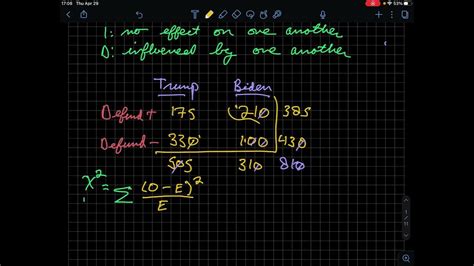 17:06 Thu Apr 29
53%
I: no effect on one another
D: influenced by one another
Trump Biden
Defund + 175 210 385
Defund - 330 100 430
505 310 810
χ² = Σ (O - E)²
E